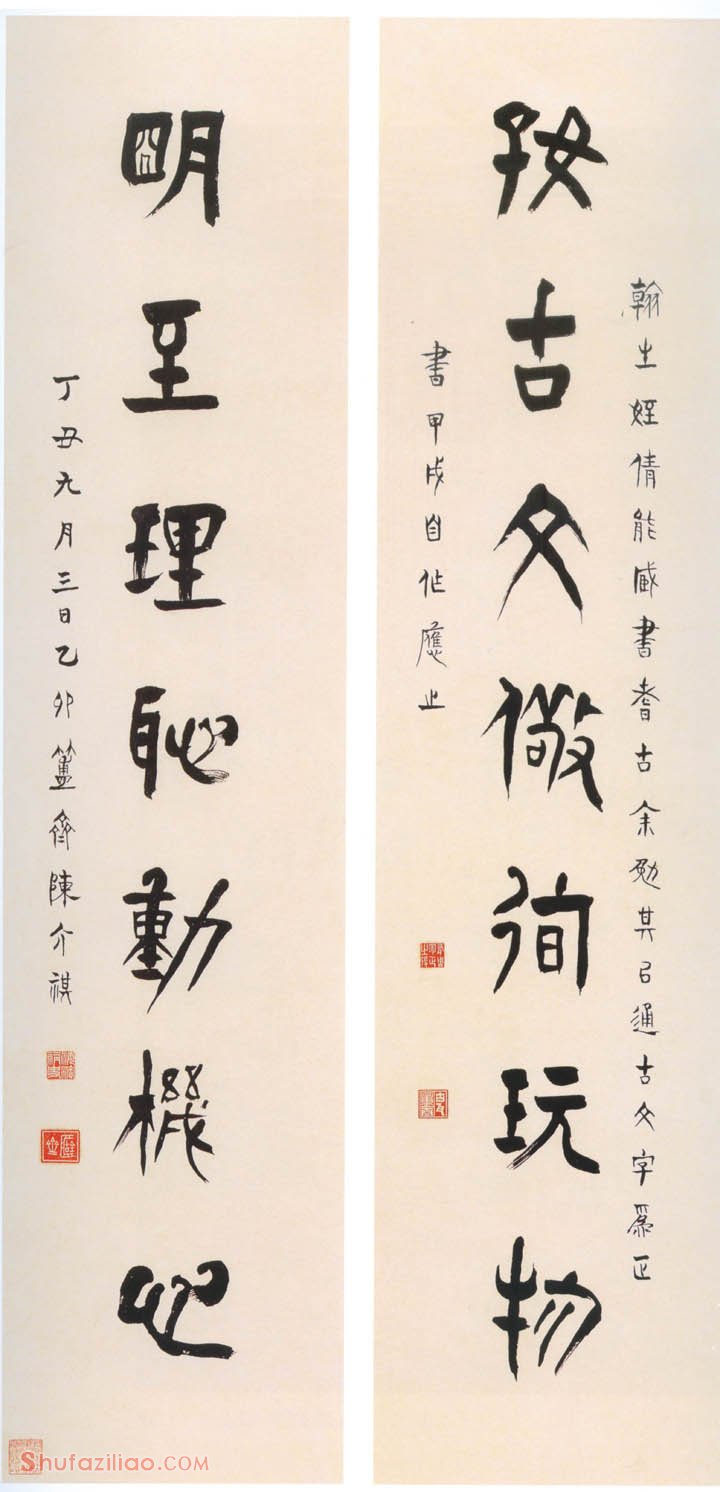 翰生姪倩能臧書耆古余勉其㠯通古文字爲正
好古文儆徇玩物
書甲戌自作應之
明至理恥動機心
丁丑九月三日乙卯簠齋陳介祺
Shufaziliao.COM